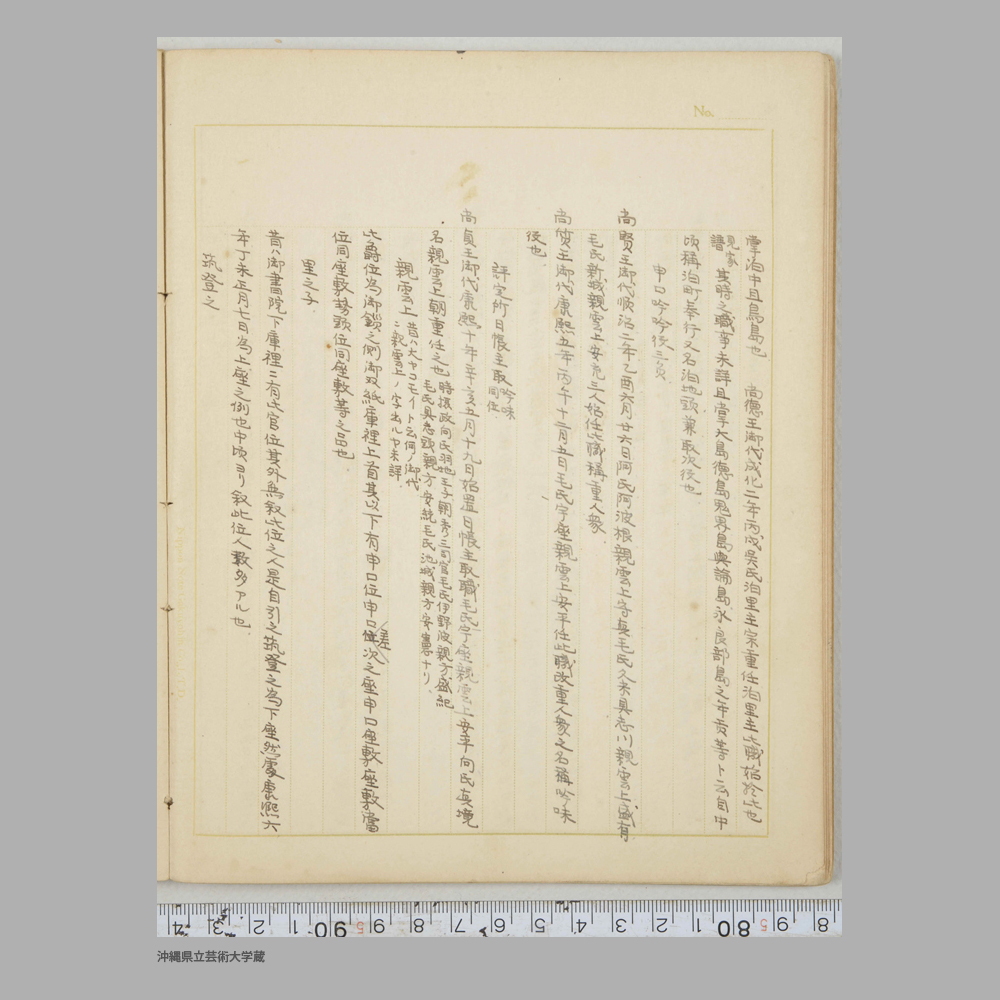 No.
掌泊中且鳥島也　尚徳王御代成化二年丙戌呉氏泊里主宗重任泊里主此職始於此也
見家譜　其時之職事未詳且掌大島徳島鬼界島與論島永良部島之年貢等ト云自中
頃稱泊町奉行又名泊地頭兼取次後也
申口吟吟後三員
尚賢王御代順治二年乙酉六月廿六日阿氏阿波根親雲上守真毛氏久米具志川親雲上盛有
毛氏新城親雲上安充三人始任此職稱重人衆
尚質王御代康熙五年丙午十二月五日毛氏宇座親雲上安平任此職改重人衆之名稱吟味
後也
評定所日帳主取 吟味同位
尚貞王御代康熙十年辛亥五月十九日始置日帳主取職毛氏宇座親雲上安平向氏真境
名親雲上朝重任之也 時摂政向氏羽地王子朝秀三司官毛氏伊野波親方盛紀
毛氏具志頭親方安統毛氏池城親方安憲ナリ
親雲上 昔ハ大ヤコモイト云何ノ御代
ニ親雲上ノ字出ルヤ未詳
此爵位為御鎖之側御双紙庫裡上首其以下有申口位申口座次之座申口座敷座敷當
位同座敷勢頭位同座敷等之品也
里之子
昔ハ御書院下庫裡ニ有此官位其外無叙此位之人是自引之筑登之為下座然處康熙六
年丁未正月七日為上座之例也中頃ヨリ叙此位人数多アル也
筑登之
4 3 2 1 90 9 8 7 6 5 4 3 2 1 80 9 8
沖縄県立芸術大学蔵